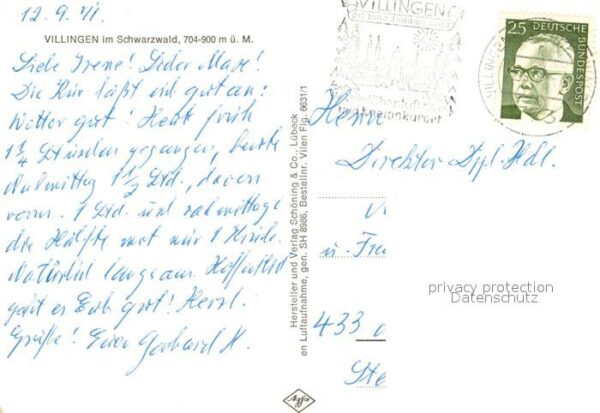 12.9.71.
VILLINGEN im Schwarzwald, 704-900 m ü. M.
Liebe Irene! Lieber Max!
Die Kur läßt sich gut an:
Wetter gut! Heute früh
1 1/4 Stunden gegangen, heute
Nachmittag 1 1/2 Std., davon
vorm. 1 Std. und nachmittags
die Hälfte mit nur 1
Natürlich langsam. Hoffentlich
geht es Euch gut! Herzl.
Grüße! Euer Gerhard H.
Hersteller und Verlag Schöning & Co., Lübeck
en Luftaufnahme, gen. SH 8986, Bestellnr. Vilen Flg. 6631/1
Agfa
VILLINGEN
Kneippkurort
25
DEUTSCHE BUNDESPOST
VILLINGEN
Herrn
Direktor Dpl. Hdl.
u. Fra
433
Ste
privacy protection
Datenschutz